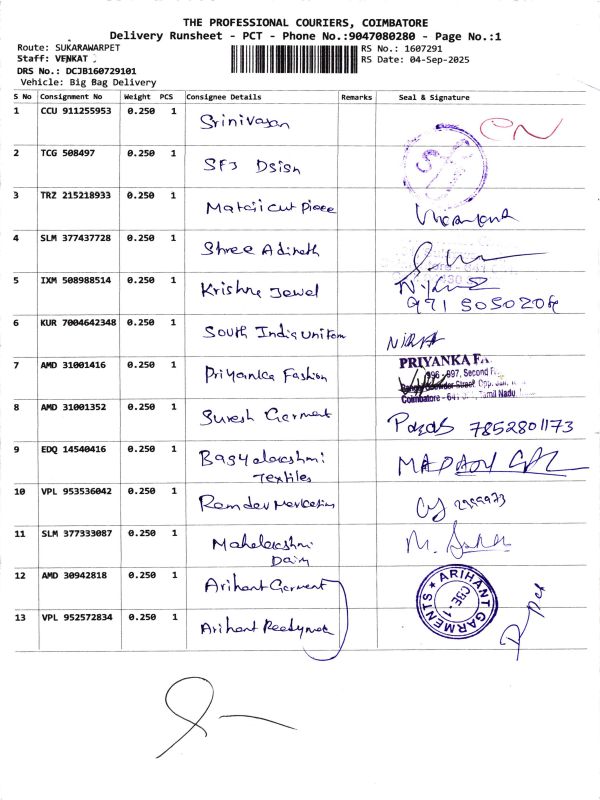 THE PROFESSIONAL COURIERS, COIMBATORE
Delivery Runsheet - PCT - Phone No.:9047080280 - Page No.:1
Route: SUKARAWARPET
RS No.: 1607291
Staff: VENKAT
RS Date: 04-Sep-2025
DRS No.: DCJB160729101
Vehicle: Big Bag Delivery
S No Consignment No Weight PCS Consignee Details Remarks Seal & Signature
1 CCU 911255953 0.250 1 Srinivasan
2 TCG 508497 0.250 1 SFJ Dsign
3 TRZ 215218933 0.250 1 Matajicut Piece
4 SLM 377437728 0.250 1 Shree Adinath
5 IXM 508988514 0.250 1 Krishna Jewel
6 KUR 7004642348 0.250 1 South India Uniform
7 AMD 31001416 0.250 1 Priyanka Fashion PRIYANKA
997, Second
Street Opp.
Coimbatore - 641 Tamil Nadu
8 AMD 31001352 0.250 1 Suresh Garment 7852801173
9 EDQ 14540416 0.250 1 Bagyalakshmi
Textiles
10 VPL 953536042 0.250 1 Ramdev Marketing
11 SLM 377333087 0.250 1 Mahalakshmi
Dairy M.
12 AMD 30942818 0.250 1 Arihant Garment ARIHANT GARMENTS
CBE-1
13 VPL 952572834 0.250 1 Arihant Readymade